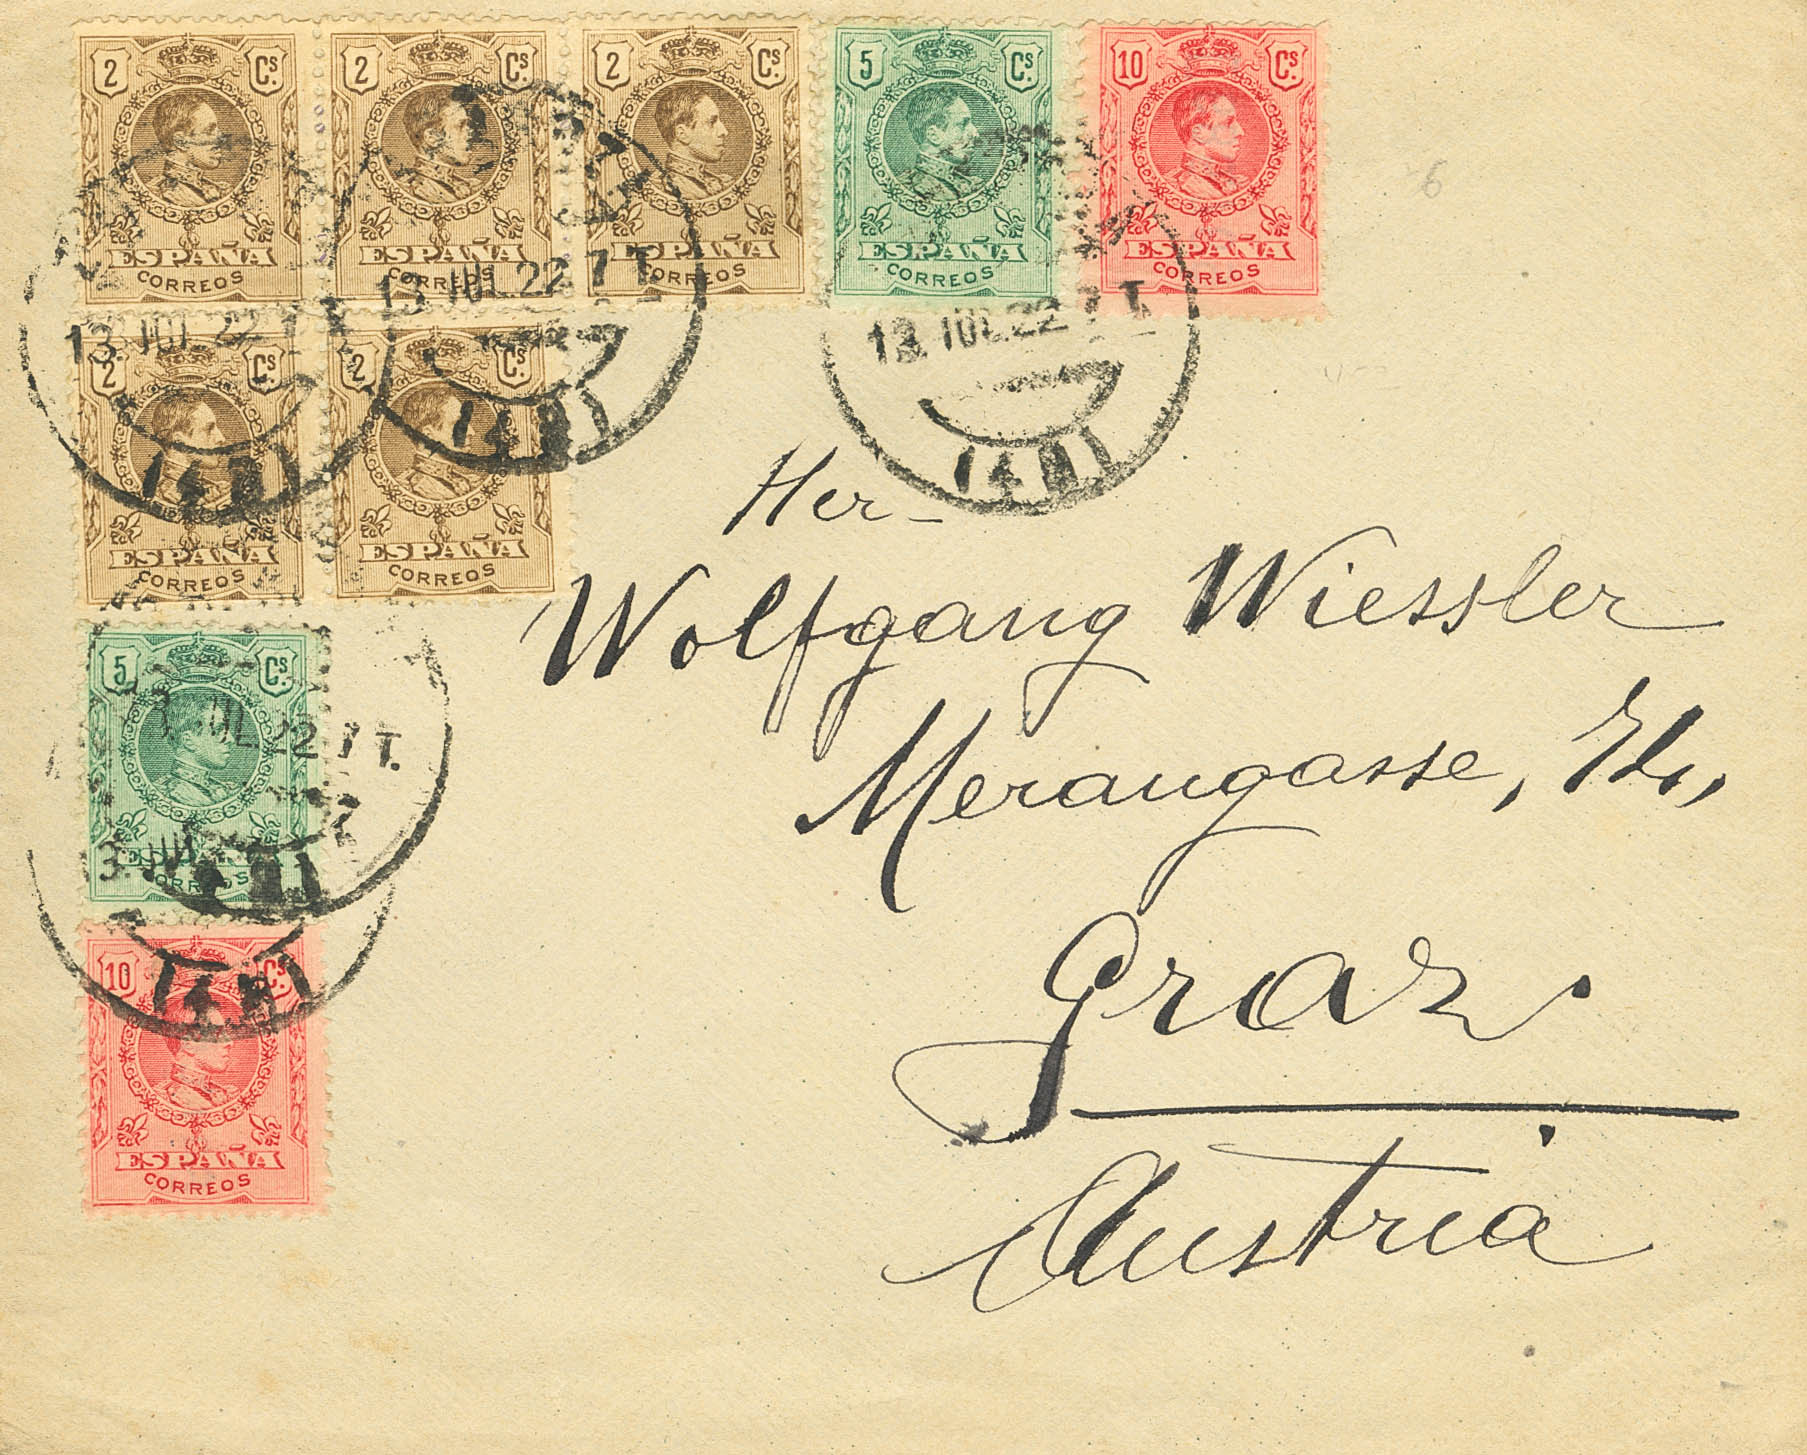 2 Cs. 2 Cs. 2 Cs. 5 Cs. 10 Cs.
ESPAÑA ESPAÑA ESPAÑA ESPAÑA ESPAÑA
CORREOS CORREOS CORREOS CORREOS CORREOS
13 JUL 22 7 T. 13 JUL 22 7 T. 13. JUL. 22 7 T.
2 Cs. 2 Cs.
ESPAÑA ESPAÑA
CORREOS CORREOS
6
Her-
Wolfgang Wiessler
Merangasse,
Graz.
Austria
5 Cs.
JUL 22 7 T.
ESPAÑA
CORREOS
10 Cs.
ESPAÑA
CORREOS